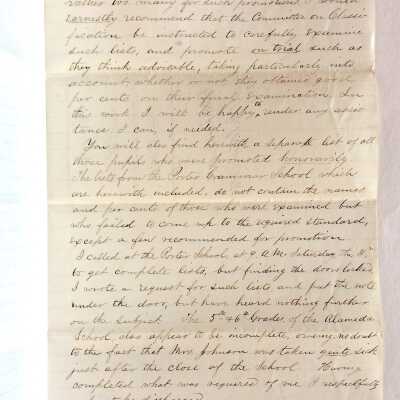 rather too many for such promotions I would
earnestly recommend that the Committee on Classi-
fication be instructed to carefully examine
such lists, and promote on trial such as
they think advisable, taking particularly into
account, whether or not they obtained good
per cents on their final examination. In
this work I will be happy to render any assis
tance I can, if needed.
You will also find herewith, a separate list of all
those pupils who were promoted honorarily.
The lists from the Porter Grammar School which
are herewith included, do not contain the names
and per cents of those who were examined but
who failed to come up to the required standard,
except a few recommended for promotion.
I called at the Porter School, at 9 A.M. Saturday the
to get complete lists, but finding the doors locked
I wrote a request for such lists and put the note
under the door, but have heard nothing further
on the subject. The 5th & 6th Grades of the Alameda
School, also appear to be incomplete, owing no doubt
to the fact that Mrs. Johnson was taken quite sick
just after the close of the School. Having
completed what was required of me I respectfully
to be discharged